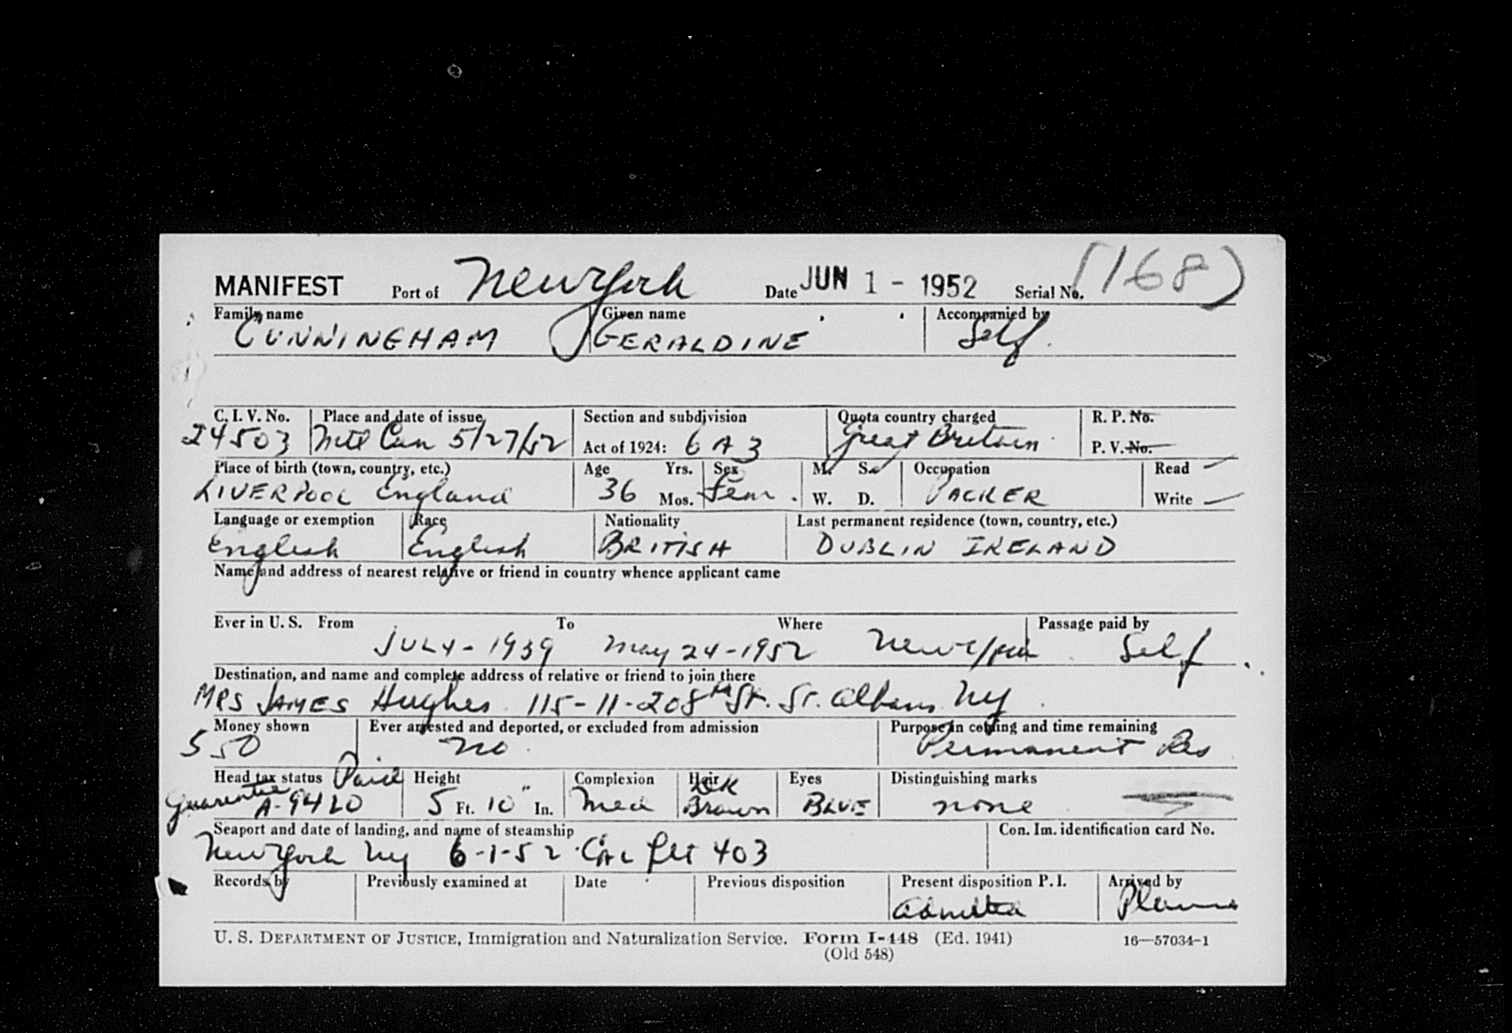 MANIFEST Port of New York Date JUN 1 - 1952 Serial No. (168)
Family name Given name Accompanied by
CUNNINGHAM GERALDINE Self
C. I. V. No. Place and date of issue Section and subdivision Quota country charged R. P. No.
24503 Mtl Can 5/27/52 Act of 1924: 6 A 3 Great Britain P. V. No.
Place of birth (town, country, etc.) Age Yrs. Sex M. S. Occupation Read
LIVERPOOL England 36 Mos. Fem. W. D. PACKER Write
Language or exemption Race Nationality Last permanent residence (town, country, etc.)
English English BRITISH DUBLIN IRELAND
Name and address of nearest relative or friend in country whence applicant came
Ever in U. S. From To Where Passage paid by
JULY - 1939 May 24 - 1952 New York Self
Destination, and name and complete address of relative or friend to join there
MRS JAMES Hughes 115-11-208th St. St. Albans NY
Money shown Ever arrested and deported, or excluded from admission Purpose in coming and time remaining
550 no Permanent Res
Head tax status Paid Height Complexion Hair Eyes Distinguishing marks
Guarantee A-9420 5 Ft. 10" In. Med DK Brown BLUE none
Seaport and date of landing, and name of steamship Con. Im. identification card No.
New York NY 6-1-52 flt 403
Records by Previously examined at Date Previous disposition Present disposition P. I. Arrived by
Admitted Plane
U. S. DEPARTMENT OF JUSTICE, Immigration and Naturalization Service. Form I-448 (Ed. 1941) 16—57034-1
(Old 548)